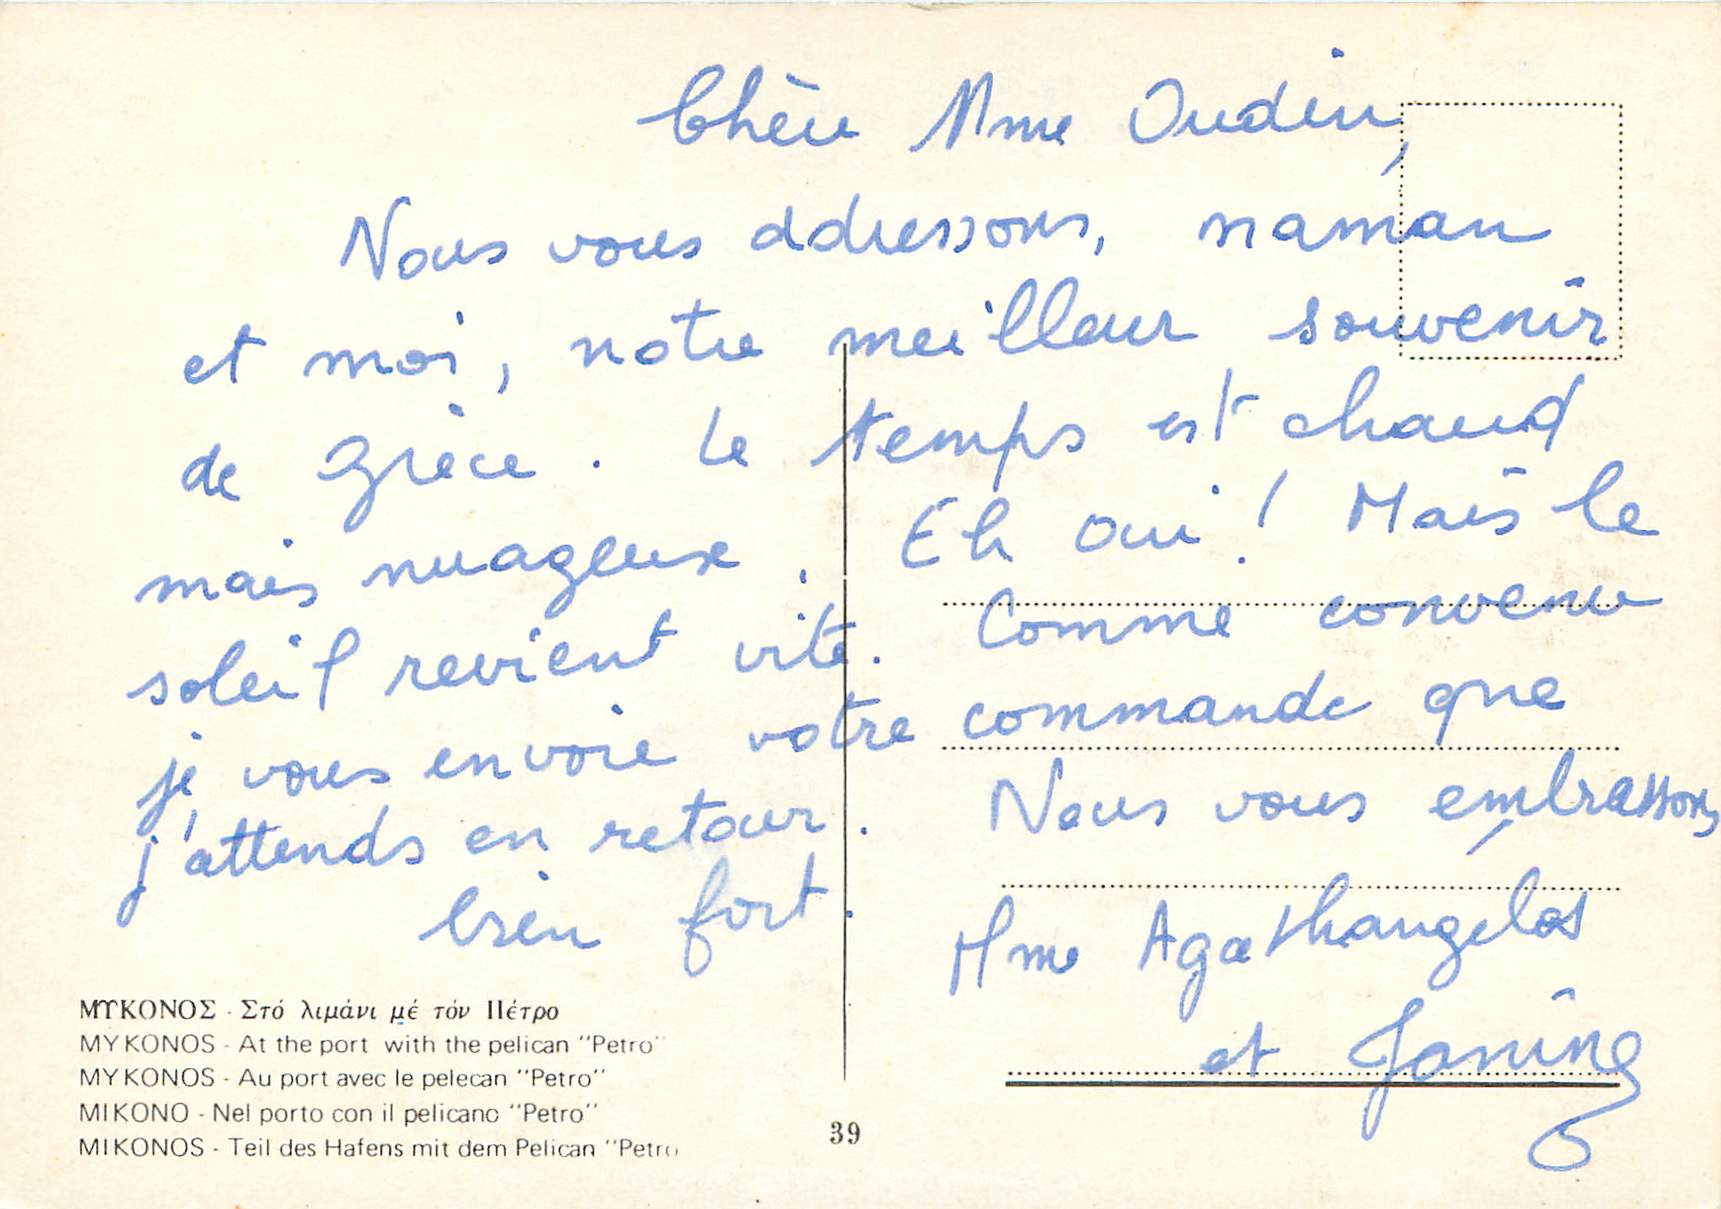 Chère Mme Oudin,
Nous vous addressons, maman
et moi, notre meilleur souvenir
de Grèce. Le temps est chaud
mais nuageux. Eh oui! Mais le
soleil revient vite. Comme convenu
je vous envoie votre commande que
j'attends en retour. Nous vous embrassons,
bien fort.
Mme Agathangelos
et Janine
ΜΥΚΟΝΟΣ - Στό λιμάνι μέ τόν Πέτρο
MYKONOS - At the port with the pelican "Petro"
MYKONOS - Au port avec le pelecan "Petro"
MIKONO - Nel porto con il pelicano "Petro"
MIKONOS - Teil des Hafens mit dem Pelican "Petro
39